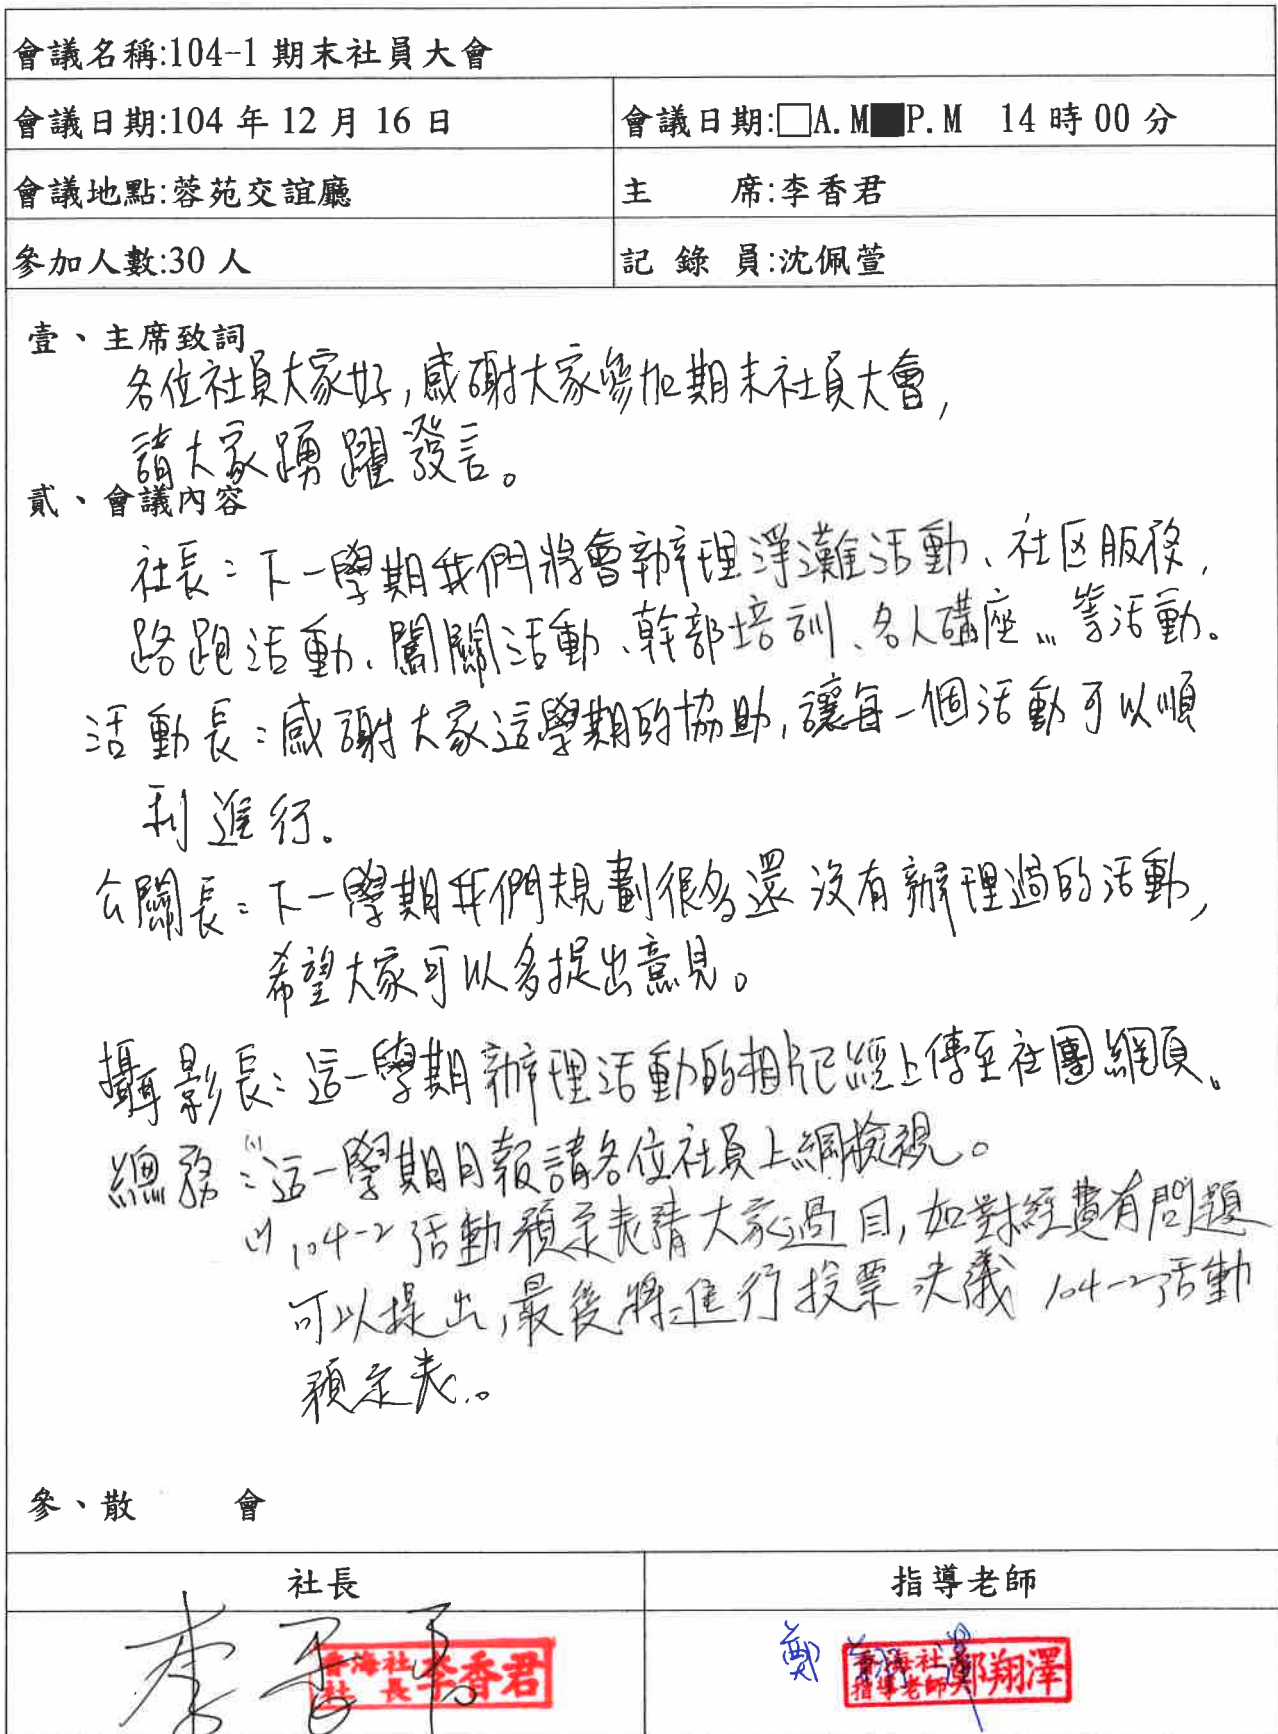 會議名稱:104-1 期末社員大會
會議日期:104 年 12 月 16 日
會議日期:□A.M■P.M 14 時 00 分
會議地點:蓉苑交誼廳
主 席:李香君
參加人數:30 人
記 錄 員:沈佩萱
壹、主席致詞
各位社員大家好,感謝大家參加期末社員大會,
請大家踴躍發言。
貳、會議內容
社長:下一學期我們將會辦理淨灘活動、社区服務,
路跑活動、闖關活動、幹部培訓、名人講座…等活動。
活動長:感謝大家這學期的協助,讓每一個活動可以順
利進行。
公關長:下一學期我們規劃很多還沒有辦理過的活動,
希望大家可以多提出意見。
攝影長:這一學期辦理活動的相片已經上傳至社團網頁。
總務:(1)這一學期月報請各位社員上網檢視。
104-2 活動預定表請大家過目,如對經費有問題
可以提出,最後將進行投票決議 104-2活動
預定表。
參、散 會
社長
指導老師
李香君
香海社
社 長 李香君
鄭翔澤
香海社
指導老師 鄭翔澤